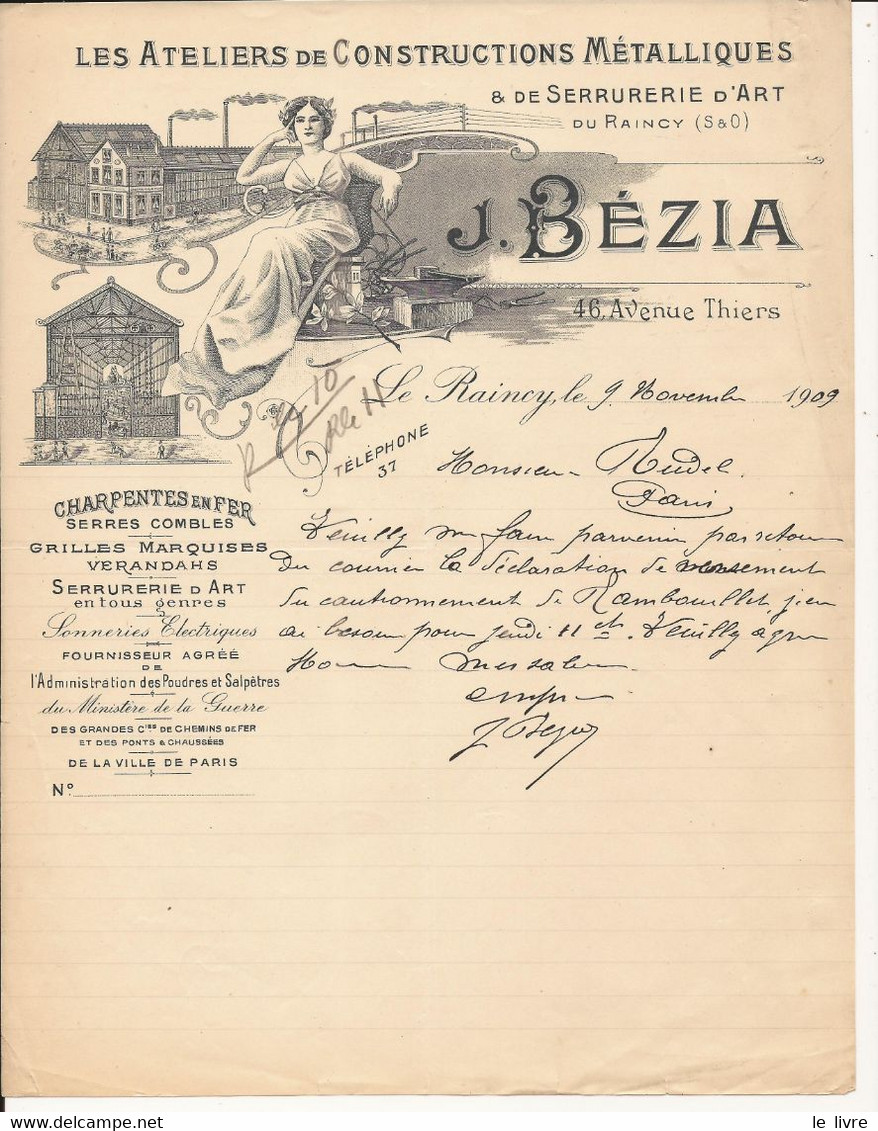 LES ATELIERS DE CONSTRUCTIONS MÉTALLIQUES
& DE SERRURERIE D'ART
DU RAINCY (S&O)
J. BÉZIA
46, Avenue Thiers
Le Raincy, le 9 Novembre 1909
R le 10
Rle 11
TÉLÉPHONE
37
Monsieur Rudel
Paris
CHARPENTES EN FER
SERRES COMBLES
GRILLES MARQUISES
VERANDAHS
SERRURERIE D ART
en tous genres
Sonneries Electriques
FOURNISSEUR AGRÉÉ
DE
l'Administration des Poudres et Salpêtres
du Ministère de la Guerre
DES GRANDES Cies DE CHEMINS DE FER
ET DES PONTS & CHAUSSÉES
DE LA VILLE DE PARIS
No
Veuillez me faire parvenir par retour
du courrier la déclaration de versement
du cautionnement de Rambouillet, j'en
ai besoin pour jeudi 11 ct. Veuillez agréer
Monsieur mes salut
J Bezia
le livre